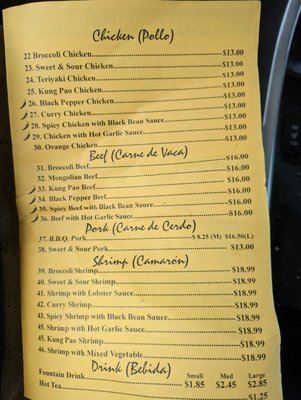 Chicken (Pollo)
22 Broccoli Chicken $13.00
23. Sweet & Sour Chicken $13.00
24. Teriyaki Chicken $13.00
25. Kung Pao Chicken $13.00
26. Black Pepper Chicken $13.00
27. Curry Chicken $13.00
28. Spicy Chicken with Black Bean Sauce $13.00
29. Chicken with Hot Garlic Sauce $13.00
30. Orange Chicken $13.00
Beef (Carne de Vaca)
31. Broccoli Beef $16.00
32. Mongolian Beef $16.00
33. Kung Pao Beef $16.00
34. Black Pepper Beef $16.00
35. Spicy Beef with Black Bean Sauce $16.00
36. Beef with Hot Garlic Sauce $16.00
Pork (Carne de Cerdo)
37. B.B.Q. Pork $ 8.25 (M) $16.50(L)
38. Sweet & Sour Pork $13.00
Shrimp (Camarón)
39. Broccoli Shrimp $18.99
40. Sweet & Sour Shrimp $18.99
41. Shrimp with Lobster Sauce $18.99
42. Curry Shrimp $18.99
43. Spicy Shrimp with Black Bean Sauce $18.99
45. Shrimp with Hot Garlic Sauce $18.99
45. Kung Pao Shrimp $18.99
46. Shrimp with Mixed Vegetable $18.99
Drink (Bebida)
Small Med Large
Fountain Drink $1.85 $2.45 $2.85
Hot Tea $1.25